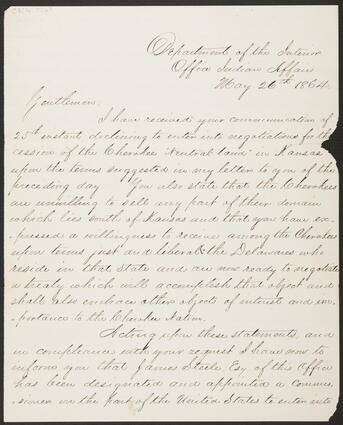 Department of the Interior
Office Indian Affairs
May 26th 1864.
Gentlemen:
I have received your communication of
25th instant declining to enter into negotiations for the
cession of the Cherokee Neutral land in Kansas
upon the terms suggested in my letter to you of the
preceding day You also state that the Cherokees
are unwilling to sell any part of their domain
which lies south of Kansas and that you have ex-
-pressed a willingness to receive among the Cherokees
upon terms just and liberal the Delawares who
reside in that State and are now ready to negotiate
a treaty which will accomplish that object and
shall also embrace other objects of interest and im-
-portance to the Cherokee Nation.
Acting upon these statements, and
in compliance with your request I have now to
inform you that James Steele Esq of this Office
has been designated and appointed a Commis-
-sioner on the part of the United States to enter into